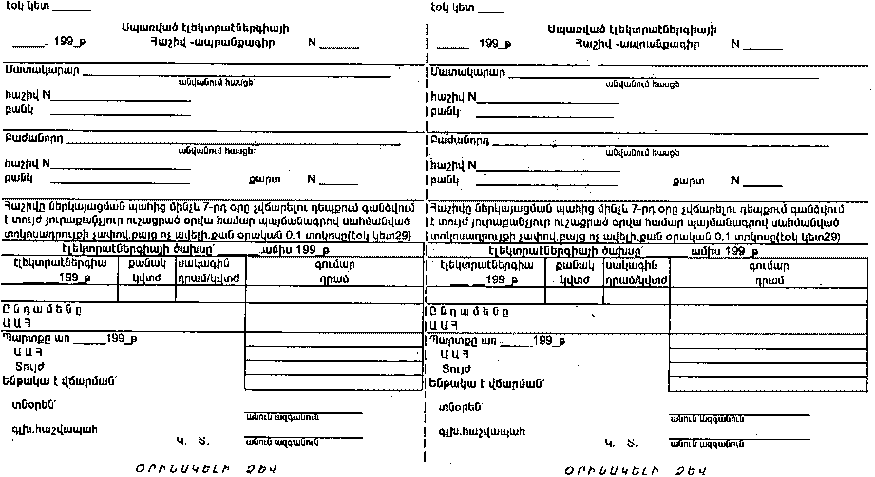 էօկ կետ _____
Սպառված էլեկտրաէներգիայի
_____ 199_թ Հաշիվ -ապրանքագիր N _____
Մատակարար
անվանում հասցե
հաշիվ N
բանկ
Բաժանորդ
անվանում հասցե
հաշիվ N
բանկ քարտ N _____
Հաշիվը ներկայացման պահից մինչև 7-րդ օրը չվճարելու դեպքում գանձվում
է տույժ յուրաքանչյուր ուշացրած օրվա համար պայմանագրով սահմանված
տոկոսադրույքի չափով,բայց ոչ ավելի,քան օրական 0.1 տոկոսը(էօկ կետ29)
էլեկտրաէներգիայի ծախսը՝ _____ ամիս 199_թ
էլեկտրաէներգիա քանակ սակագին գումար
_____199_թ կվտժ դրամ/կվտժ դրամ
Ընդամենը
ԱԱՀ
Պարտքը առ _____199_թ
ԱԱՀ
Տույժ
Ենթակա է վճարման՝
տնօրեն՝
անուն ազգանուն
գլխ.հաշվապահ
Կ. Տ. անուն ազգանուն
ՕՐԻՆԱԿԵԼԻ ՁԵՎ
էօկ կետ _____
Սպառված էլեկտրաէներգիայի
_____ 199_թ Հաշիվ -ապրանքագիր N _____
Մատակարար
անվանում հասցե
հաշիվ N
բանկ
Բաժանորդ
անվանում հասցե
հաշիվ N
բանկ քարտ N _____
Հաշիվը ներկայացման պահից մինչև 7-րդ օրը չվճարելու դեպքում գանձվում
է տույժ յուրաքանչյուր ուշացրած օրվա համար պայմանագրով սահմանված
տոկոսադրույքի չափով,բայց ոչ ավելի,քան օրական 0.1 տոկոսը(էօկ կետ29)
էլեկտրաէներգիայի ծախսը՝ _____ ամիս 199_թ
էլեկտրաէներգիա քանակ սակագին գումար
_____199_թ կվտժ դրամ/կվտժ դրամ
Ընդամենը
ԱԱՀ
Պարտքը առ _____199_թ
ԱԱՀ
Տույժ
Ենթակա է վճարման՝
տնօրեն՝
անուն ազգանուն
գլխ.հաշվապահ
Կ. Տ. անուն ազգանուն
ՕՐԻՆԱԿԵԼԻ ՁԵՎ